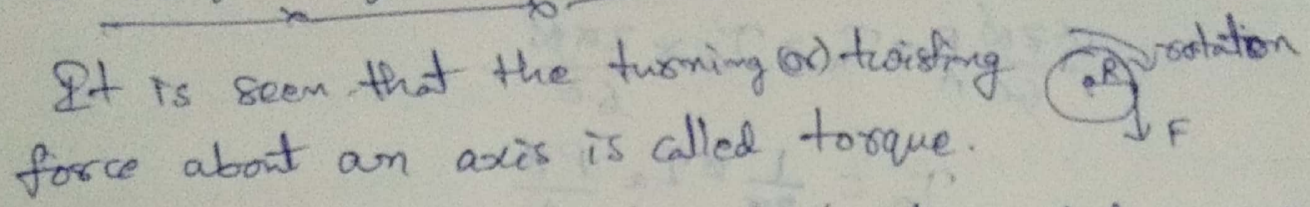 It is seen that the turning (or) twisting
force about an axis is called torque.
R
rotation
F